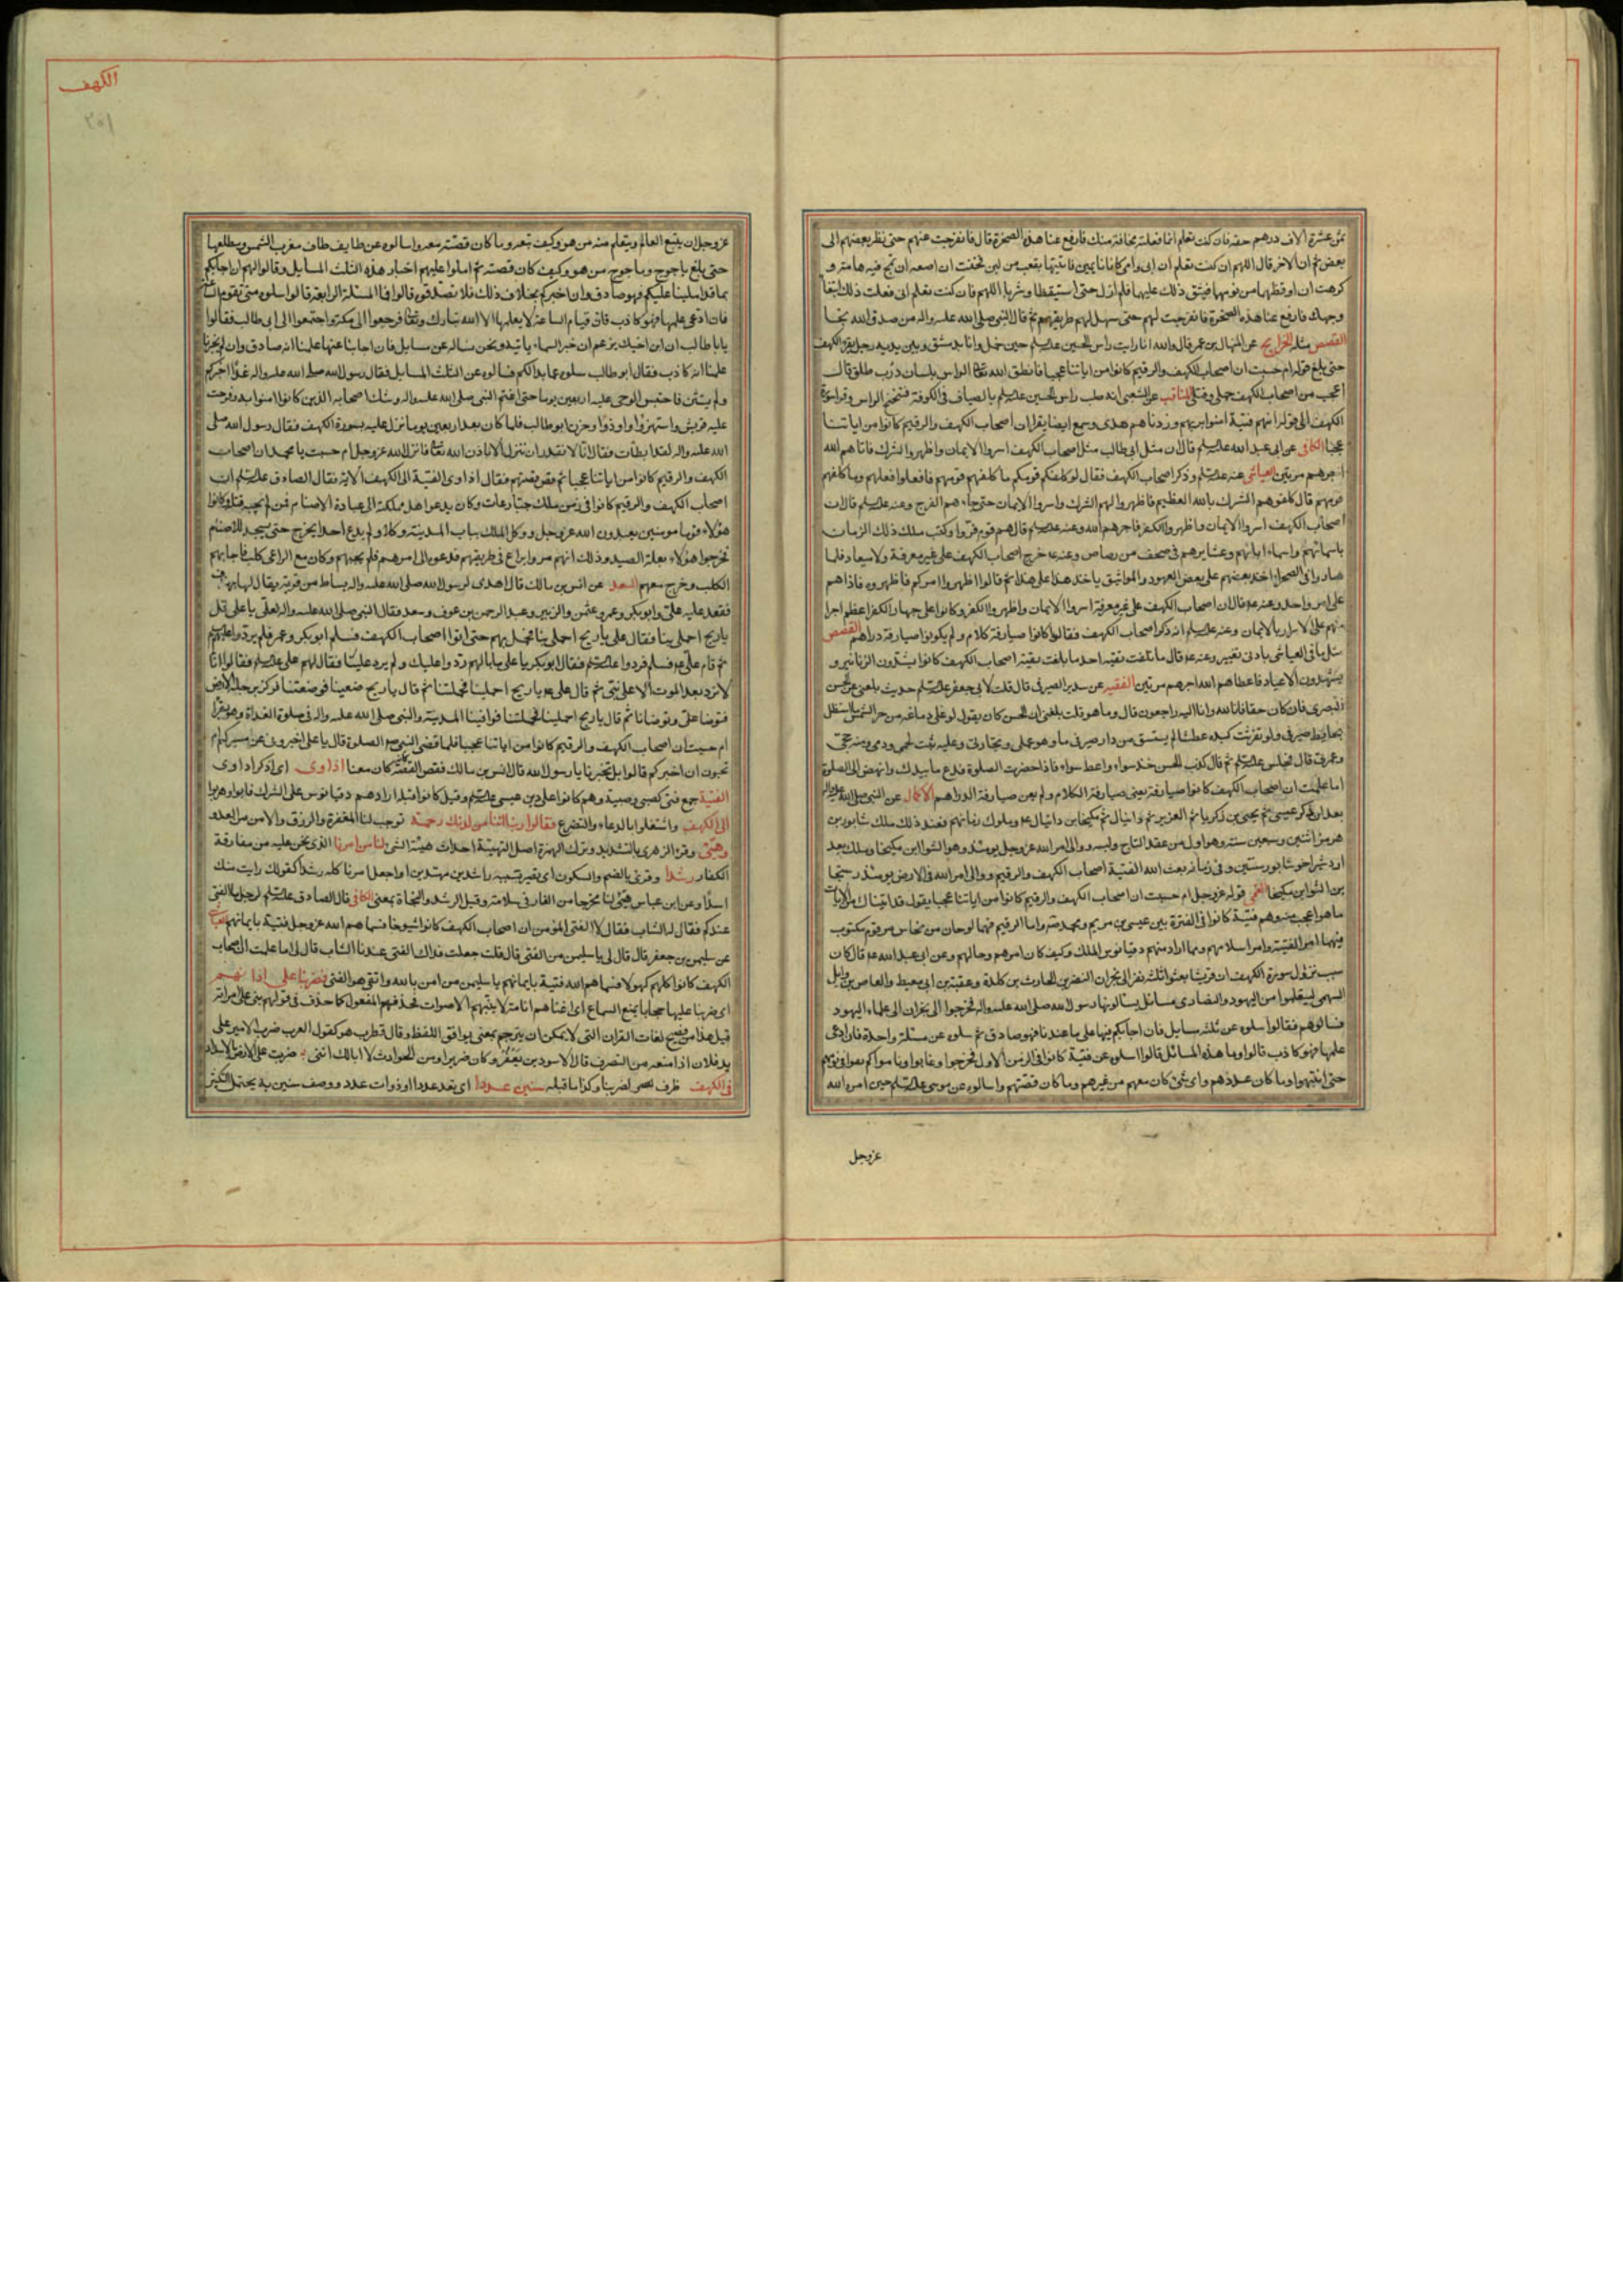 ثمن عشرة الاف درهم حقه فان كنت تعلم انما فعلته مخافة منك فارفع عنا هذه الصخرة قال فانفرجت عنهم حتى نظر بعضهم الى
بعض ثم ان الاخر قال اللهم ان كنت تعلم ان ابى وامى كانا نايمين فاتيتهما بقعب من لبن فخفت ان اضعه ان تمج فيه هامة و
كرهت ان اوقظهما من نومهما فيشق ذلك عليهما فلم ازل حتى استيقظا وشربا اللهم فان كنت تعلم انى فعلت ذلك ابتغا
وجهك فارفع عنا هذه الصخرة فانفرجت لهم حتى سهل لهم طريقهم ثم قال النبى صلى الله عليه واله من صدق الله نجا
القصص مثله الخرايج عن المنهال بن عمر قال والله انا رايت راس الحسين عليه السلم حين حمل وانا بدمشق وبين يديه رجل يقرء الكهف
حتى بلغ قوله ام حسبت ان اصحاب الكهف والرقيم كانوا من اياتنا عجبا فانطق الله تعالى الراس بلسان ذرب طلق قال
اعجب من اصحاب الكهف حملى وقتلى المناقب عن الشعبى انه صلب راس الحسين عليه السلم بالصياف فى الكوفة فتنحنح الراس وقرا سورة
الكهف الى قوله انهم فتية امنوا بربهم وزدناهم هدى وسمع ايضا يقرا ان اصحاب الكهف والرقيم كانوا من اياتنا
عجبا الكافى عن ابى عبد الله عليه السلم قال ان مثل ابى طالب مثل اصحاب الكهف اسروا الايمان واظهروا الشرك فاتاهم الله
اجرهم مرتين العياشى عنه عليه السلم وذكر اصحاب الكهف فقال لو كلفكم قومكم ما كلفهم قومهم فافعلوا فعلهم وما كلفهم
قومهم قال كلفوهم الشرك بالله العظيم فاظهروا لهم الشرك واسروا الايمان حتى جاءهم الفرج وعنه عليه السلم قال ان
اصحاب الكهف اسروا الايمان واظهروا الكفر فاجرهم الله وعنه عليه السلم قال هم قوم فروا وكتب ملك ذلك الزمان
باسمائهم واسماء ابائهم وعشايرهم فى صحف من رصاص وعنه ع خرج اصحاب الكهف على غير معرفة ولا ميعاد فلما
صاروا فى الصحرا اخذ بعضهم على بعض العهود والمواثيق ياخذ هذا على هذا ثم قالوا اظهروا امركم فاظهروه فاذا هم
على امر واحد وعنه ع قال ان اصحاب الكهف على غير معرفة اسروا الايمان واظهروا الكفر وكانوا على جهار الكفر اعظم اجرا
منهم على الاسرار بالايمان وعنه عليه السلم انه ذكر اصحاب الكهف فقال كانوا صيارفة كلام ولم يكونوا صيارفة دراهم القصص
مثل ما فى العياشى بادنى تغيير وعنه ع قال ما بلغت تقية احد ما بلغت تقية اصحاب الكهف كانوا يشدون الزنانير و
يشهدون الاعياد فاعطاهم الله اجرهم مرتين الفقيه عن سدير الصيرفى قال قلت لابى جعفر عليه السلم حديث بلغنى عن الحسن
البصرى فان كان حقا فانا لله وانا اليه راجعون قال وما هو قلت بلغنى ان الحسن كان يقول لو غلى دماغه من حر الشمس ما استظل
بحايط صيرفى ولو تفرثت كبده عطشا لم يستسق من دار صيرفى ماء وهو عملى وتجارتى وعليه نبت لحمى ودمى ومنه حجى
وعمرتى قال فجلس عليه السلم ثم قال كذب الحسن خذ سواء واعط سواء فاذا حضرت الصلوة فدع ما بيدك وانهض الى الصلوة
اما علمت ان اصحاب الكهف كانوا صيارفة يعنى صيارفة الكلام ولم يعن صيارفة الدراهم الاكمال عن النبى صلى الله عليه واله
بعد ان ذكر عيسى ثم يحيى بن زكريا ثم العزير ثم دانيال ثم مكيخا بن دانيال ع وملوك زمانهم فعند ذلك ملك شابور بن
هرمز اثنين وسبعين سنة وهو اول من عقد التاج ولبسه ووالى امر الله عز وجل يومئذ وهو انشوا ابن مكيخا وملك بعده
اردشير اخو شابور سنتين وفى زمانه بعث الله الفتية اصحاب الكهف والرقيم ووالى امر الله فى الارض يومئذ رسيخا
بن انشوا بن مكيخا القمى قوله عز وجل ام حسبت ان اصحاب الكهف والرقيم كانوا من اياتنا عجبا يقول قد اتيناك من الايات
ما هو اعجب منه وهم فتية كانوا فى الفترة بين عيسى بن مريم ومحمد ص واما الرقيم فهما لوحان من نحاس مرقوم مكتوب
فيهما امر الفتية وامر اسلامهم وما اراد منهم دقيانوس الملك وكيف كان امرهم وحالهم وعن ابى عبد الله ع قال كان
سبب نزول سورة الكهف ان قريشا بعثوا ثلثة نفر الى نجران النضر بن الحارث بن كلدة وعقبة بن ابى معيط والعاص بن وايل
السهمى ليتعلموا من اليهود والنصارى مسائل يسالونها رسول الله صلى الله عليه واله فخرجوا الى نجران الى علماء اليهود
فسالوهم فقالوا سلوه عن ثلث مسايل فان اجابكم فيها على ما عندنا فهو صادق ثم سلوه عن مسئلة واحدة فان ادعى
علمها فهو كاذب قالوا وما هذه المسائل قالوا سلوه عن فتية كانوا فى الزمن الاول فخرجوا وغابوا وناموا كم بقوا فى نومهم
حتى انتبهوا وما كان عددهم واى شئ كان معهم من غيرهم وما كان قصتهم واسالوه عن موسى عليه السلم حين امره الله
عز وجل
الكهف
٢٥١
عز وجل ان يتبع العالم ويتعلم منه من هو وكيف تبعه وما كان قصته معه واسالوه عن طايف طاف مغرب الشمس ومطلعها
حتى بلغ ياجوج وماجوج من هو وكيف كان قصته ثم املوا عليهم اخبار هذه الثلث المسايل وقالوا لهم ان اجابكم
بما قد املينا عليكم فهو صادق وان اخبركم بخلاف ذلك فلا تصدقوه قالوا فما المسئلة الرابعة قالوا سلوه متى تقوم الساعة
فان ادعى علمها فهو كاذب فان قيام الساعة لا يعلمها الا الله تبارك وتعالى فرجعوا الى مكة واجتمعوا الى ابى طالب فقالوا
يا با طالب ان ابن اخيك يزعم ان خبر السماء ياتيه ونحن نساله عن مسايل فان اجابنا عنها علمنا انه صادق وان لم يخبرنا
علمنا انه كاذب فقال ابو طالب سلوه عما بدا لكم فسالوه عن الثلث المسايل فقال رسول الله صلى الله عليه واله غدا اخبركم
ولم يستثن فاحتبس الوحى عليه اربعين يوما حتى اغتم النبى صلى الله عليه واله وشك اصحابه الذين كانوا امنوا به وفرحت
عليه قريش واستهزؤا واوذوا وحزن ابو طالب فلما كان بعد اربعين يوما نزل عليه بسورة الكهف فقال رسول الله صلى
الله عليه واله لقد ابطات فقال انا لا نقدر ان ننزل الا باذن الله تعالى فانزل الله عز وجل ام حسبت يا محمد ان اصحاب
الكهف والرقيم كانوا من اياتنا عجبا ثم قص قصتهم فقال اذ اوى الفتية الى الكهف الاية فقال الصادق عليه السلم ان
اصحاب الكهف والرقيم كانوا فى زمن ملك جبار عات وكان يدعو اهل مملكته الى عبادة الاصنام فمن لم يجبه قتله وكانوا
هؤلاء قوما مومنين يعبدون الله عز وجل ووكل الملك بباب المدينة وكلاء ولم يدع احدا يخرج حتى يسجد للاصنام
فخرجوا هؤلاء بعلة الصيد وذلك انهم مروا براع فى طريقهم فدعوه الى امرهم فلم يجبهم وكان مع الراعى كلب فاجابهم
الكلب وخرج معهم السعد عن انس بن مالك قال اهدى لرسول الله صلى الله عليه واله بساط من قرية يقال لها بهندف
فقعد عليه على وابو بكر وعمر وعثمن والزبير وعبد الرحمن بن عوف وسعد فقال النبى صلى الله عليه واله لعلى يا على قل
يا ريح احملى بنا فقال على يا ريح احملى بنا فحمل بهم حتى اتوا اصحاب الكهف فسلم ابو بكر وعمر فلم يردوا عليهم
ثم قام على ع فسلم فردوا عليه السلم فقال ابو بكر يا على ما بالهم ردوا عليك ولم يردوا علينا فقال لهم على عليه السلم فقالوا انا
لا نرد بعد الموت الا على نبى ثم قال على ع يا ريح احملينا فحملتنا ثم قال يا ريح ضعينا فوضعتنا فركز برجله الارض
فتوضا على وتوضانا ثم قال يا ريح احملينا فحملتنا فوافينا المدينة والنبى صلى الله عليه واله فى صلوة الغداة وهو يقرا
ام حسبت ان اصحاب الكهف والرقيم كانوا من اياتنا عجبا فلما قضى النبى ص الصلوة قال يا على اخبرونى عن مسيركم ام
تحبون ان اخبركم قالوا بل تخبرنا يا رسول الله قال انس بن مالك فقص القصة كان معنا اذ اوى اى اذكر اذ اوى
الفتية جمع فتى كصبى وصبية وهم كانوا على دين عيسى عليه السلم وقيل كانوا قبله ارادهم دقيانوس على الشرك فابوا وهربوا
الى الكهف واشتغلوا بالدعاء والتضرع فقالوا ربنا اتنا من لدنك رحمة توجب لنا المغفرة والرزق والامن من العدو
وهيئ وقرئ الزهرى بالتشديد وترك الهمزة اصل التهيئة احداث هيئة الشئ لنا من امرنا الذى نحن عليه من مفارقة
الكفار رشدا وقرئ بالضم والسكون اى نصير بسببه راشدين مهتدين او اجعل امرنا كله رشدا كقولك رايت منك
اسدا وعن ابن عباس هيئ لنا مخرجا من الغار فى سلامة وقيل الرشد والنجاة بمعنى الكافى قال الصادق عليه السلم لرجل ما الفتى
عندكم فقال له الشاب فقال لا الفتى المؤمن ان اصحاب الكهف كانوا شيوخا فسماهم الله عز وجل فتية بايمانهم العياشى
عن سليمن بن جعفر قال قال لى يا سليمن من الفتى قال قلت جعلت فداك الفتى عندنا الشاب قال لى اما علمت ان اصحاب
الكهف كانوا كلهم كهولا فسماهم الله فتية بايمانهم يا سليمن من امن بالله واتقى هو الفتى فضربنا على اذانهم
اى ضربنا عليها حجابا يمنع السماع اى انمناهم انامة لا ينبههم الاصوات فحذف المفعول كما حذف فى قولهم بنى على امراته
قيل هذا من فصيح لغات القران التى لا يمكن ان يترجم بمعنى يوافق اللفظ وقال قطرب هو كقول العرب ضرب الامير على
يد فلان اذا منعه من التصرف قال الاسود بن يعفر وكان ضريرا ومن الحوادث لا ابا لك اننى ضربت على الارض بالاسداد
فى الكهف ظرف لضربنا وكذا ما قبله سنين عددا اى بعدد عددا او ذوات عدد ووصف سنين به يحتمل التكثير